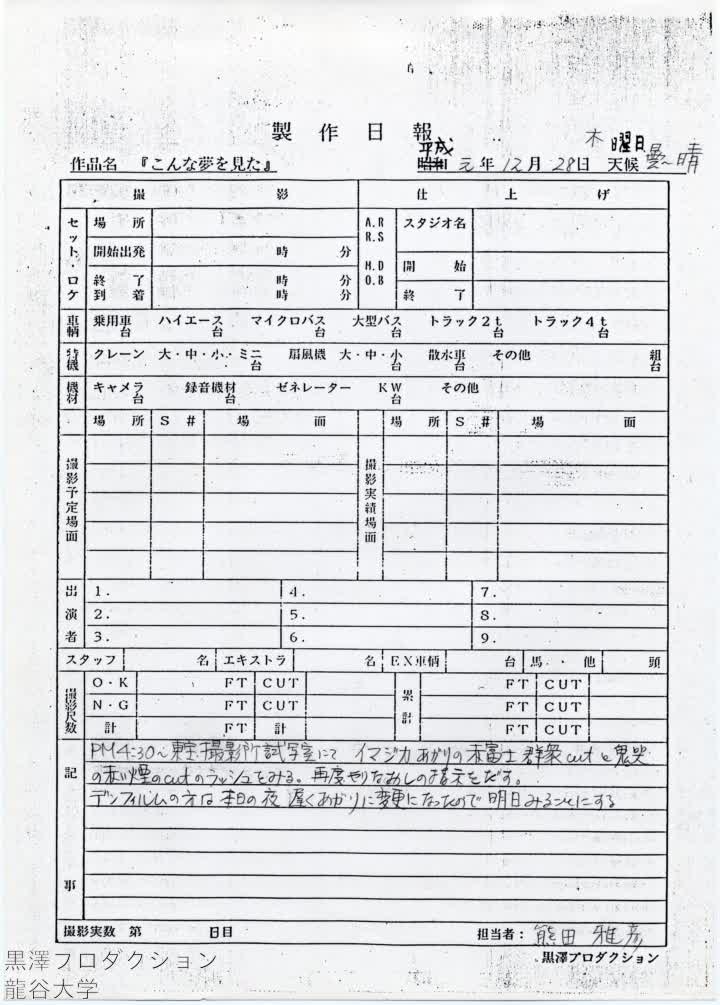 製作日報
木曜日
作品名 『こんな夢を見た』 平成 昭和 元年12月28日 天候 曇〜晴
撮影 仕上げ
セット・ロケ 場所 A.R R.S スタジオ名
開始出発 時 分 M.D O.B 開始
終了到着 時 分 時 分 終了
車輌 乗用車 台 ハイエース 台 マイクロバス 台 大型バス 台 トラック2t 台 トラック4t 台
特機 クレーン 大・中・小・ミニ 台 扇風機 大・中・小 台 散水車 台 その他 組 台
機材 キャメラ 台 録音機材 台 ゼネレーター KW 台 その他
場所 S# 場面 場所 S# 場面
撮影予定場面 撮影実績場面
出演者 1. 4. 7.
2. 5. 8.
3. 6. 9.
スタッフ 名 エキストラ 名 EX車輌 台 馬・他 頭
撮影尺数 O・K FT CUT 累計 FT CUT
N・G FT CUT FT CUT
計 FT 計 FT CUT
記事
PM4:30〜東宝撮影所試写室にて イマジカあがりの赤富士群衆cutと鬼哭
の赤い煙のcutのラッシュをみる。再度やりなおしの指示をだす。
デンフィルムの方は本日の夜遅くあがりに変更になったので明日みることにする
撮影実数 第 日目 担当者: 熊田雅彦
黒澤プロダクション
黒澤プロダクション
龍谷大学